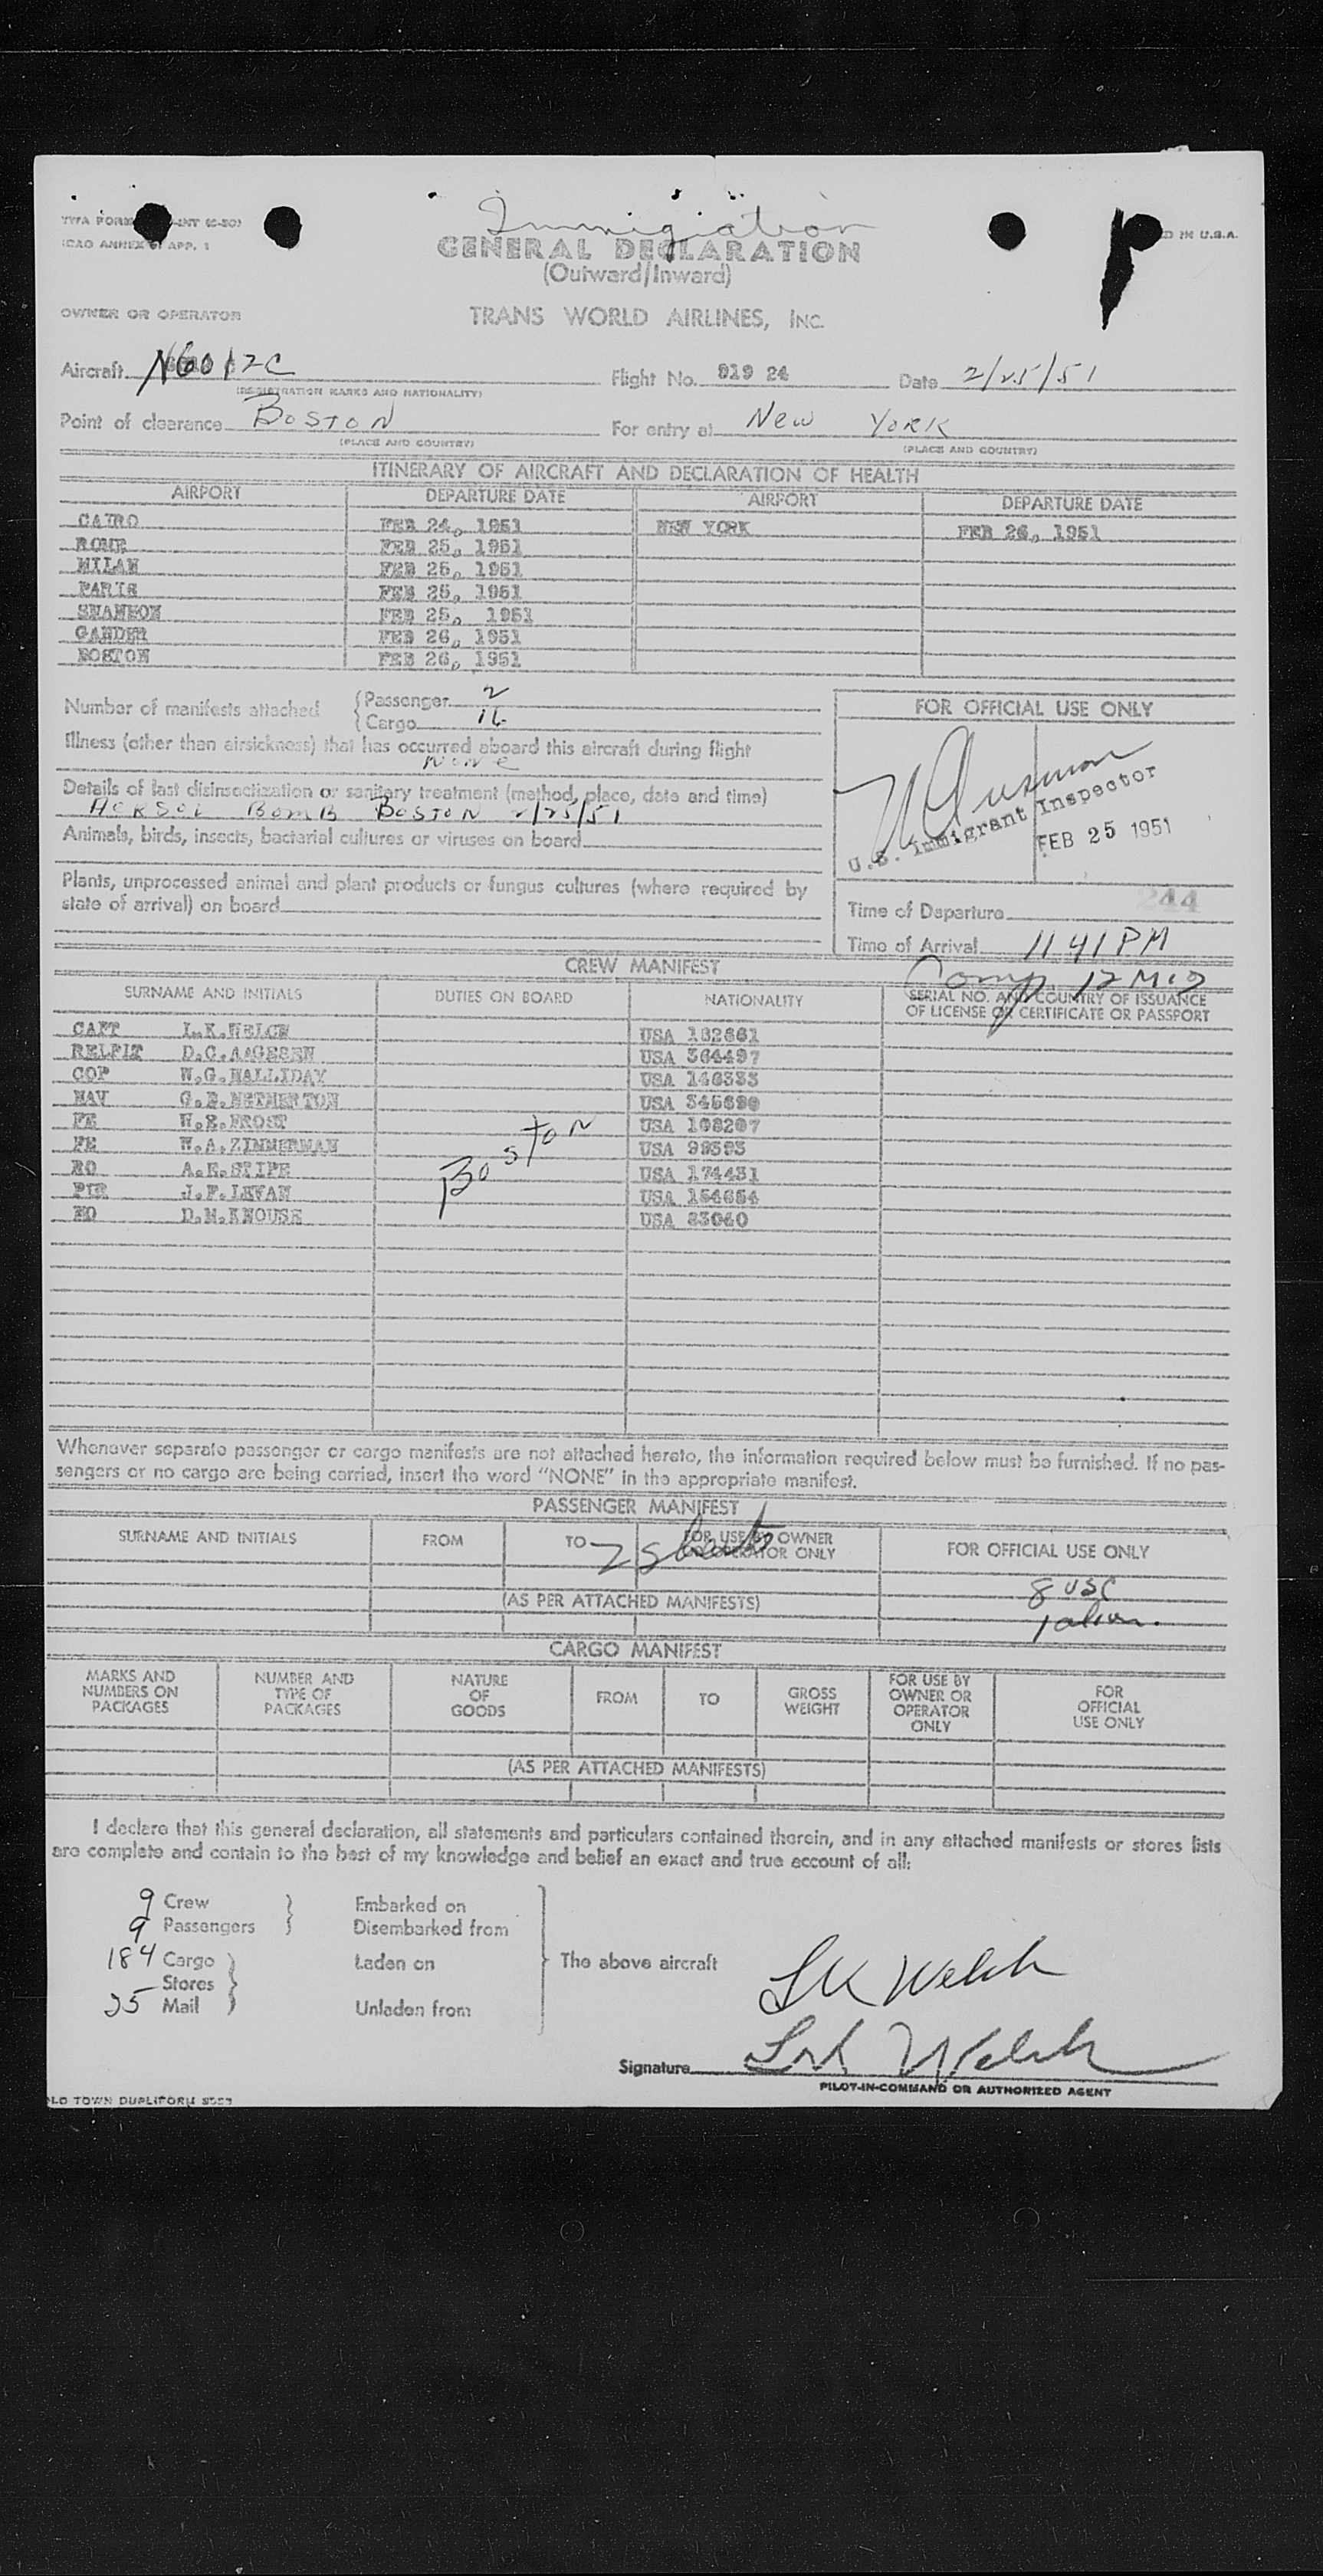 Immigration
TWA FORM -INT (6-50)
ICAO ANNEX 9, APP. 1
D IN U.S.A.
GENERAL DECLARATION
(Outward/Inward)
OWNER OR OPERATOR TRANS WORLD AIRLINES, INC.
Aircraft N6012C Flight No. 919 24 Date 2/25/51
(REGISTRATION MARKS AND NATIONALITY)
Point of clearance BOSTON For entry at New York
(PLACE AND COUNTRY) (PLACE AND COUNTRY)
ITINERARY OF AIRCRAFT AND DECLARATION OF HEALTH
AIRPORT DEPARTURE DATE AIRPORT DEPARTURE DATE
CAIRO FEB 24, 1951 NEW YORK FEB 26, 1951
ROME FEB 25, 1951
MILAN FEB 25, 1951
PARIS FEB 25, 1951
SHANNON FEB 25, 1951
GANDER FEB 26, 1951
BOSTON FEB 26, 1951
Number of manifests attached Passenger 2
Cargo 16
FOR OFFICIAL USE ONLY
Illness (other than airsickness) that has occurred aboard this aircraft during flight
None
Details of last disinsectization or sanitary treatment (method, place, date and time)
AERSOL BOMB BOSTON 2/25/51
U.S. Immigrant Inspector
FEB 25 1951
Animals, birds, insects, bacterial cultures or viruses on board
Plants, unprocessed animal and plant products or fungus cultures (where required by
state of arrival) on board
244
Time of Departure
Time of Arrival 11 41 PM
Comp. 12 Mid
CREW MANIFEST
SURNAME AND INITIALS DUTIES ON BOARD NATIONALITY SERIAL NO. AND COUNTRY OF ISSUANCE
OF LICENSE OR CERTIFICATE OR PASSPORT
CAPT L.K.WELCH USA 182661
RELPIT D.C.AAGESEN USA 364497
COP W.G.HALLIDAY USA 146333
NAV G.B.NETHERTON USA 345690
FE W.E.FROST USA 108207
FE W.A.ZIMMERMAN USA 98593
RO A.E.STIPE USA 174431
PUR J.F.LEVAN USA 154654
HO D.M.KNOUSE USA 83040
Boston
Whenever separate passenger or cargo manifests are not attached hereto, the information required below must be furnished. If no pas-
sengers or no cargo are being carried, insert the word "NONE" in the appropriate manifest.
PASSENGER MANIFEST
SURNAME AND INITIALS FROM TO FOR USE BY OWNER
OR OPERATOR ONLY FOR OFFICIAL USE ONLY
2 Sheets
8 USC
1 alien.
(AS PER ATTACHED MANIFESTS)
CARGO MANIFEST
MARKS AND
NUMBERS ON
PACKAGES
NUMBER AND
TYPE OF
PACKAGES
NATURE
OF
GOODS
FROM
TO
GROSS
WEIGHT
FOR USE BY
OWNER OR
OPERATOR
ONLY
FOR
OFFICIAL
USE ONLY
(AS PER ATTACHED MANIFESTS)
I declare that this general declaration, all statements and particulars contained therein, and in any attached manifests or stores lists
are complete and contain to the best of my knowledge and belief an exact and true account of all:
9 Crew Embarked on
9 Passengers Disembarked from
184 Cargo Laden on The above aircraft
Stores
25 Mail Unladen from
LK Welch
Signature L.K. Welch
PILOT-IN-COMMAND OR AUTHORIZED AGENT
OLD TOWN DUPLIFORM